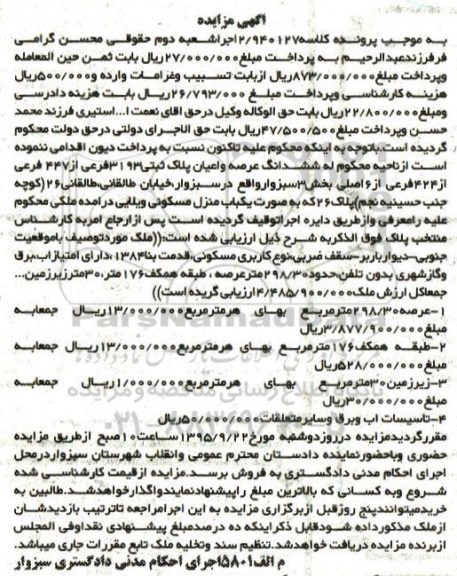 آگهی مزایده
به موجب پرونده کلاسه۲/۹۴۰۱۲۷اجراشعبه دوم حقوقی محسن گرامی
فرفرزندعبدالرحیم به پرداخت مبلغ۲۷/۰۰۰/۰۰۰ریال بابت ثمن حین المعامله
وپرداخت مبلغ۸۷۳/۰۰۰/۰۰۰ریال ازبابت تسبیب وغرامات وارده و۵۰۰/۰۰۰ریال
هزینه کارشناسی وپرداخت مبلغ ۲۶/۷۹۳/۰۰۰ریال بابت هزینه دادرسی
ومبلغ۲۲/۸۰۰/۰۰۰ریال بابت حق الوکاله وکیل درحق اقای نعمت ا...استیری فرزند محمد
حسن وپرداخت مبلغ۴۷/۵۰۰/۵۰۰ریال بابت حق الاجرای دولتی درحق دولت محکوم
گردیده است..باتوجه به اینکه محکوم علیه تاکنون نسبت به پرداخت دیون اقدامی ننموده
است ازناحیه محکوم له ششدانگ عرصه واعیان پلاک ثبتی۳۱۹۳فرعی از۴۴۷ فرعی
از۴۲۴فرعی از۶اصلی بخش۳سبزوارواقع درسبزوارخیابان طالقانی،طالقانی۲۶(کوچه
جنب حسینیه نجم)پلاک۲۶که به صورت یکباب منزل مسکونی ویلایی درامده ملکی محکوم
علیه رامعرفی وازطریق دایره اجراتوقیف گردیده است پس ازارجاع امربه کارشناس
منتخب پلاک فوق الذکربه شرح ذیل ارزیابی شده است:((ملک موردتوصیف باموقعیت
جنوبی-دیواربار بر-سقف ضربی،نوع کاربری مسکونی،قدمت بنا۱۳۸۴،دارای امتیازاب،برق
وگازشهری بدون تلفن،حدود۲۹۸/۳۰مترعرصه ، طبقه همکف۱۷۶ متر،۳۰مترزیرزمین...
جمعاکل ارزش ملک۴/۴۸۵/۹۰۰/۰۰۰ارزیابی گریده است))
۱-عرصه۲۹۸/۳۰مترمربع بهای هرمترمربع۱۳/۰۰۰/۰۰۰ریال جمعابه
مبلغ۳/۸۷۷/۹۰۰/۰۰۰ریال
۲-طبقه همکف۱۷۶مترمربع بهای هرمترمربع۳/۰۰۰/۰۰۰ریال جمعابه
مبلغ۵۲۸/۰۰۰/۰۰۰ریال
۳-زیرزمین۳۰مترمربع بهای هرمترمربع۱/۰۰۰/۰۰۰ریال جمعابه
مبلغ۳۰/۰۰۰/۰۰۰ریال
۴-تاسیسات اب وبرق وسایرمتعلقات۵۰/۰۰۰/۰۰۰ریال
مقررگردیدمزایده درروزدوشنبه مورخ۱۳۹۵/۹/۲۲ساعت۱۰صبح ازطریق مزایده
حضوری وباحضورنماینده دادستان محترم عمومی وانقلاب شهرستان سبزواردرمحل
اجرای احکام مدنی دادگستری به فروش برسد.مزایده ازقیمت کارشناسی شده
شروع وبه کسانی که بالاترین مبلغ راپیشنهادنمایندواگذارخواهدشد.طالبین به
خریدمیتوانندپنج روزقبل ازبرگزاری مزایده به این اجرامراجعه تاترتیب بازدیدشان
ازملک مذکورداده شودقابل ذکراینکه ده درصدمبلغ پیشنهادی نقداوفی المجلس
ازبرنده مزایده دریافت خواهدشد.تنظیم سند وتخلیه ملک تابع مقررات جاری میباشد.
م الف۱۵۸۰۱اجرای احکام مدنی دادگستری سبزوار